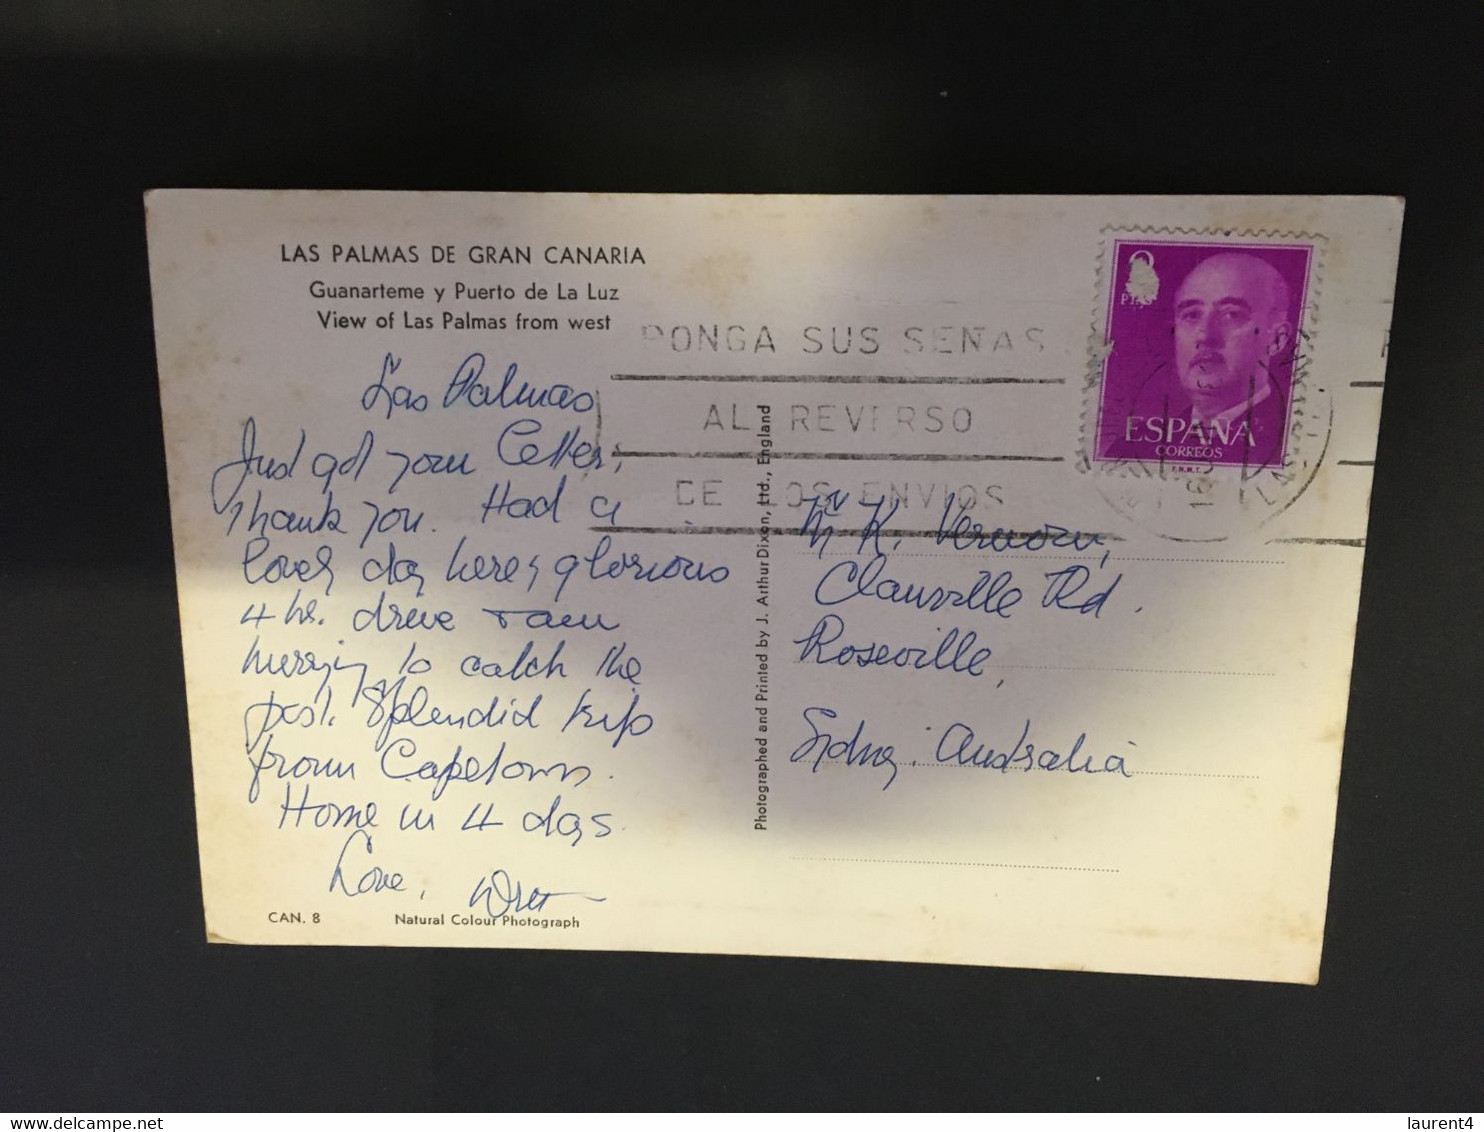 LAS PALMAS DE GRAN CANARIA
Guanarteme y Puerto de La Luz
View of Las Palmas from west
Las Palmas
Just got your Letter,
thank you. Had a
lovely day here, glorious
4 hr. drive & am
hurrying to catch the
post. Splendid trip
from Capetown.
Home in 4 days.
Love,
CAN. 8
Natural Colour Photograph
Photographed and Printed by J. Arthur Dixon, Ltd., England
PONGA SUS SENAS
AL REVERSO
DE LOS ENVIOS
PTAS
ESPAÑA
CORREOS
F.N.M.T.
Mr K. Vernon,
Clanville Rd.
Roseville,
Sydney. Australia
laurent4